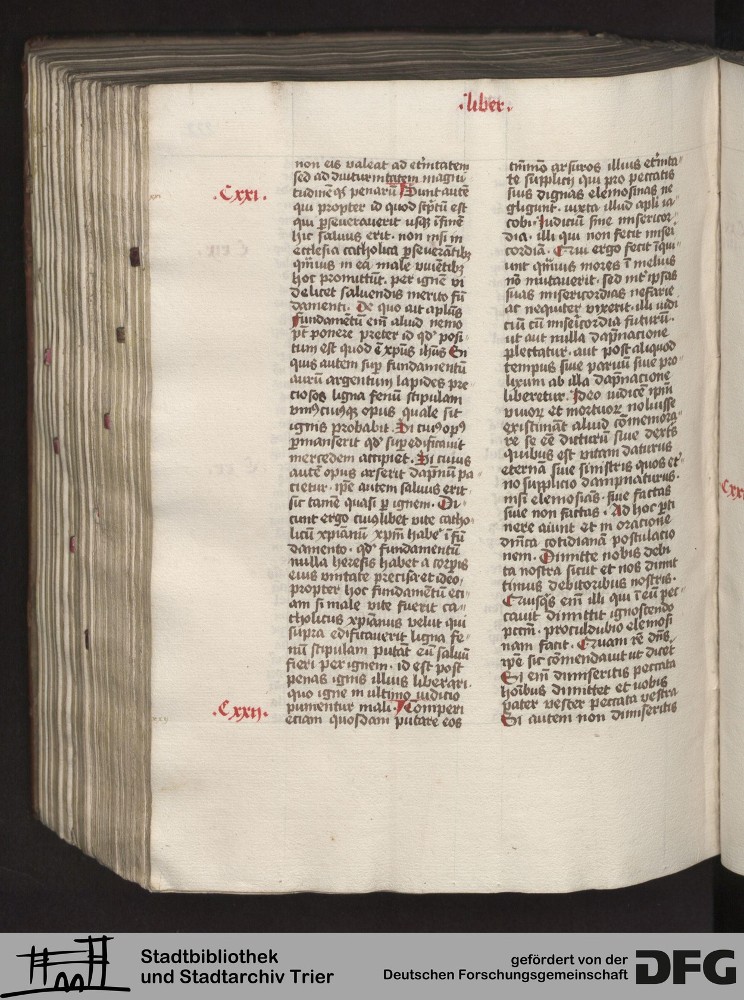 ·liber·
non eis valeat ad et'nitatem
sed ad diuturnitatem magni
·Cxxi·
tudinē q; penarū Sunt autē
qui propter id quod sc̄ptū est
qui p̄seuerauerit usq; ī finē
hic saluus erit · non nisi in
ecclesia catholica p̄seuerātib;
q̄muis in ea male viuētib;
hoc promittūt · per ignē vi
delicet saluendis merito fū
damenti · De quo ait apl̄us
fundamētū eiī aliud nemo
pt̄ ponere preter id qd' posi
tum est quod ē xp̄us ih̄us Si
quis autem sup̄ fundamentū
aurū argentum lapides pre
ciosos ligna fenū stipulam
vni9cui9q; opus quale sit
ignis probabit · Si cui9 op9
p̄manserit qd' sup̄edificauit
mercedem accipiet · Si cuius
autē opus arserit dāpnū pa
cietur · ip̄e autem saluus erit
sic tamē quasi p̄ ignem · Di
cunt ergo cui9libet vite catho
licū xp̄ianū xp̄m hab'e ī fū
damento · qd' fundamentū
nulla heresis habet a corp̄is
eius vnitate precisa · et ideo
propter hoc fundamētū eci
am si male vite fuerit ca
tholicus xp̄ianus velut qui
supra edificauerit ligna fe
nū stipulam putāt eū saluū
fieri per ignem · id est post
penas ignis illius liberari ·
quo igne in ultimo iudicio
·Cxxij·
punientur mali · Comperi
eciam quosdam putare eos
tm̄mō arsuros illius et'nita
te supplicij qui pro peccatis
suis dignas elemosinas ne
gligunt · iuxta illud apl̄i ia
cobi · Judiciū sine misericor
dia · illi qui non fecit miseri
cordiā · Qui ergo fecit īqui
unt q̄muis mores ī melius
nō mutauerit · sed int' ip̄sas
suas misericordias nefarie
ac nequiter vixerit · illi iudi
ciū cū misericordia futurū ·
ut aut nulla dāpnacione
plectatur · aut post aliquod
tempus siue paruū siue pro
lixum ab illa dāpnacione
liberetur · Ideo iudicē ip̄m
viuoꝝ et mortuoꝝ noluisse
existimāt aliud cōmemora
re se eē dicturū siue dext's
quibus est vitam daturus
eternā siue sinistris quos et'
no supplicio dampnaturus ·
nisi elemosinas · siue factas
siue non factas · Ad hoc p̄ti
nere aiunt et in oracione
dn̄ica cotidianā postulacio
nem · Dimitte nobis debi
ta nostra sicut et nos dimit
timus debitoribus nostris ·
Quisq̄s eiī illi qui ī eū pec
cauit dimittit ignoscendo
pcc̄m · proculdubio elemosi
nam facit · Quam rē dn̄s
ip̄e sic cōmendauit ut dicet
Si eiī dimiseritis peccata
hoībus dimittet et uobis
pater vester peccata vestra
Si autem non dimiseritis
Stadtbibliothek
und Stadtarchiv Trier
gefördert von der
Deutschen Forschungsgemeinschaft
DFG